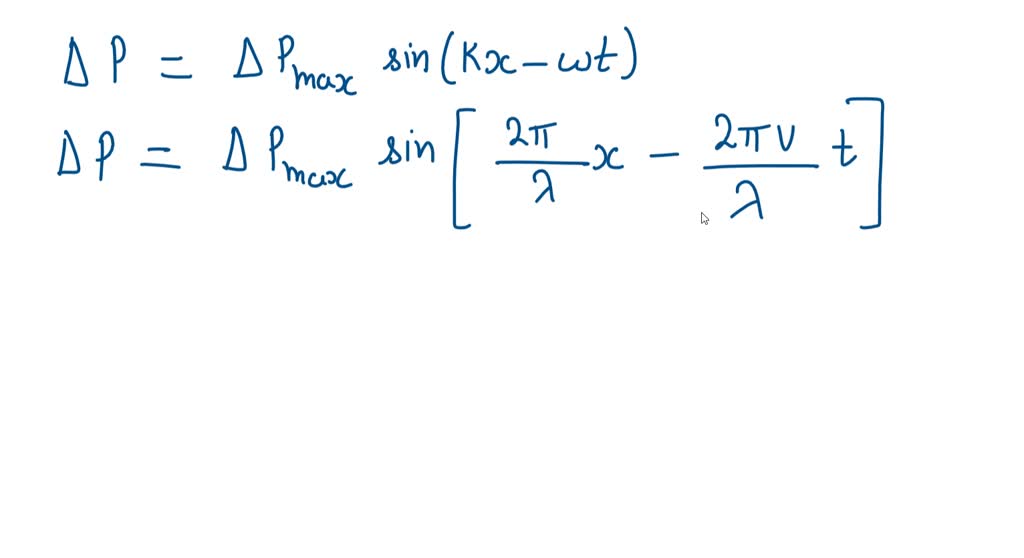 ΔP = ΔPmax sin(Kx − ωt)
ΔP = ΔPmax sin[2π/λ x − 2πv/λ t]